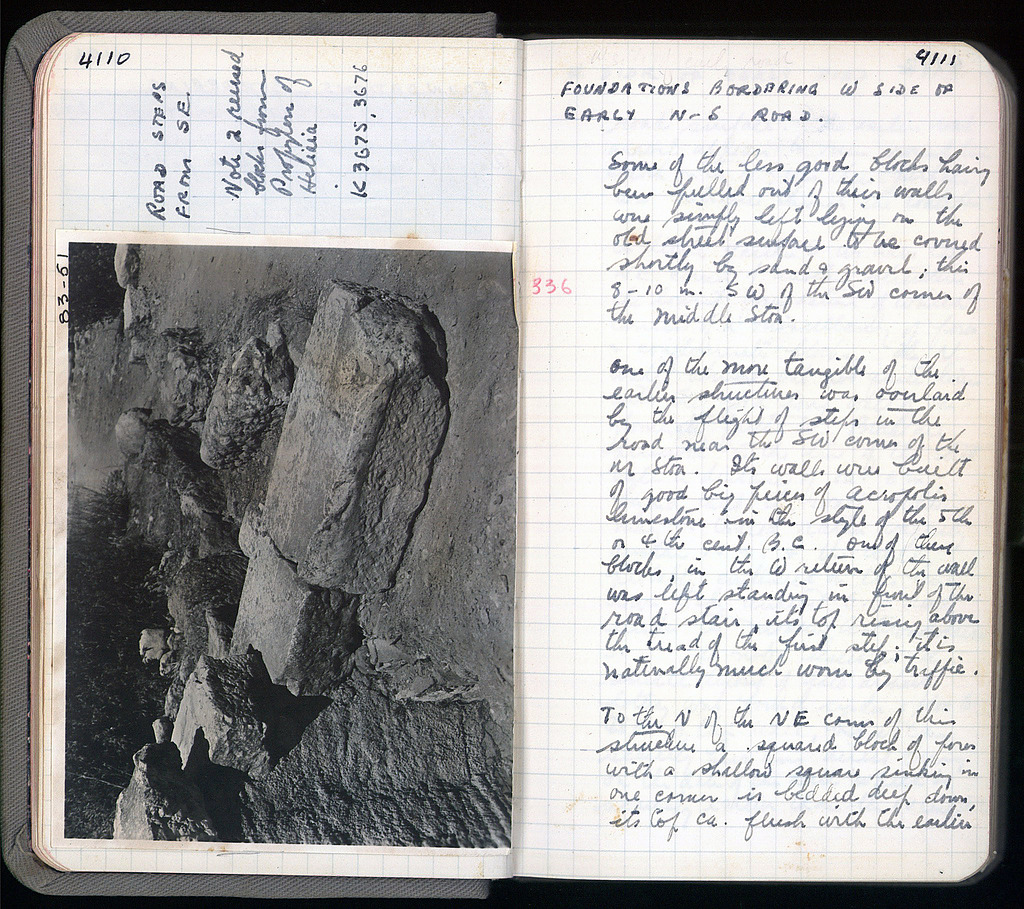 4110
ROAD STEPS
FROM SE.
Note 2 reused
blocks from
Propylon of
K 3675, 3676
83-61
4111
FOUNDATIONS BORDERING W SIDE OF
EARLY N-S ROAD.
336
Some of the less good blocks having
been pulled out of their walls
were simply left lying on the
old street surface to be covered
shortly by sand & gravel; this
8-10 m. SW of the SW corner of
the Middle Stoa.
One of the more tangible of the
earlier structures was overlaid
by the flight of steps in the
road near the SW corner of the
M Stoa. Its walls were built
of good big pieces of Acropolis
limestone in the style of the 5th
or 4th cent. B.C. One of these
blocks, in the W return of the wall
was left standing in front of the
road stair, its top rising above
the tread of the first step; it is
naturally much worn by traffic.
To the N of the NE corner of this
structure a squared block of poros
with a shallow square sinking in
one corner is bedded deep down,
its top ca. flush with the earlier